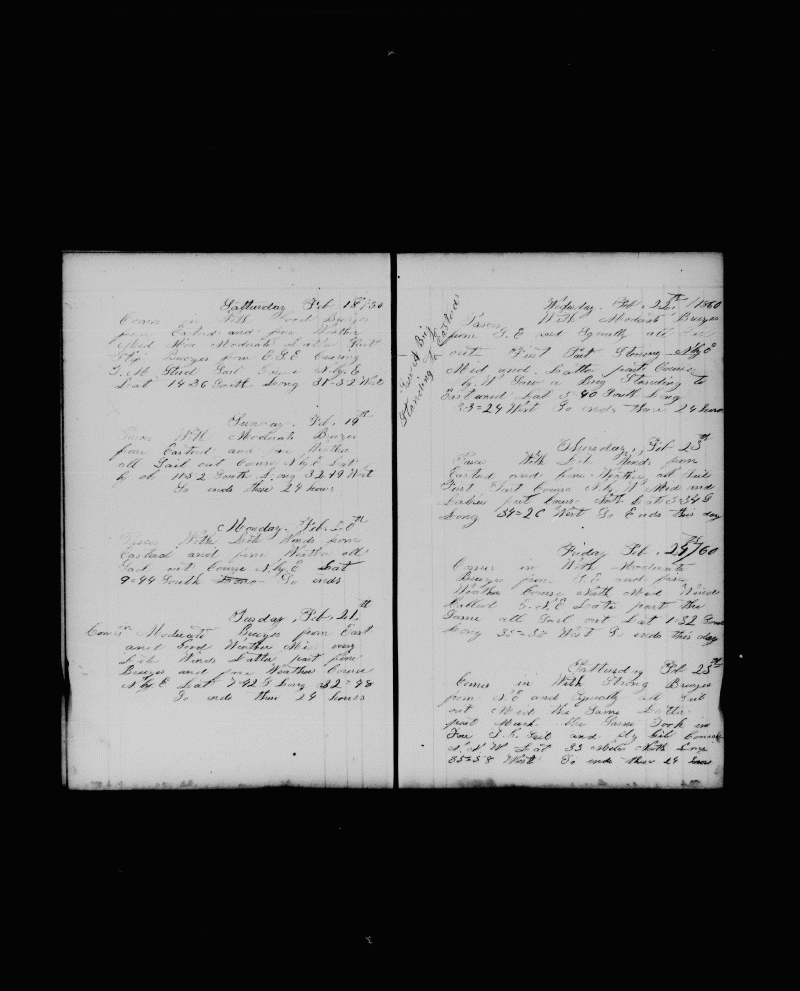 Satturday Feb 18/60
Comes in With Good Breezes
from Eastud and fine Weather
Med More Moderate Latter Part
Stif Breezes from E.S.E
Sail N.by.E
Lat 14=36 South Long 31=52 West
Sunday. Feb. 19th
With Moderate Breezes
from Eastud and fine Weather
all Sail out Course N.by.E Lat
by ob 11=52 South Long 32=19 West
So ends these 24 hours
Monday. Feb. 20th
With Lite Winds from
Eastud and fine Weather all
Sail out Course N.by.E Lat
9=44 South So ends
Tusday. Feb. 21th
Comes in Moderate Breezes from East
and Good Weather Mid very
Lite Winds Latter part fine
Breezes and fine Weather Course
N.by.E Lat 7=42 S Long 32=48
So ends these 24 hours
Saw A Brig
Standing to Eastard
Wedsday. Feb. 22th/1860
With Moderate Breezes
from S.E and Squally all Sail
out First Part Steering N.by.E
Med and Latter part Course
N. by. W Saw a Brig Standing to
Eastward Lat 5=40 South Long
33=24 West So ends these 24 hours
Thursday. Feb 23th
With Lite Winds from
Eastud and fine Weather all Sail
First Part Course N.by.W Med and
Latter part Course North Lat 3=34 S
Long 34=26 West So Ends this day
Friday Feb. 24th/60
Comes in With Moderate
Breezes from S.E and fine
Weather Course North Med Winds
E.N.E Late part the
Same all Sail out Lat 1=32 South
Long 35=32 West So ends this day
Satturday Feb 25th
Comes in With Strong Breezes
from N.E and Squally all Sail
out Med the Same Latter
part Much the Same Took in
Fore T.G. Sail and fly Gib Course
N.N.W Lat 33 Miles North Long
35=58 West So ends these 24 hours